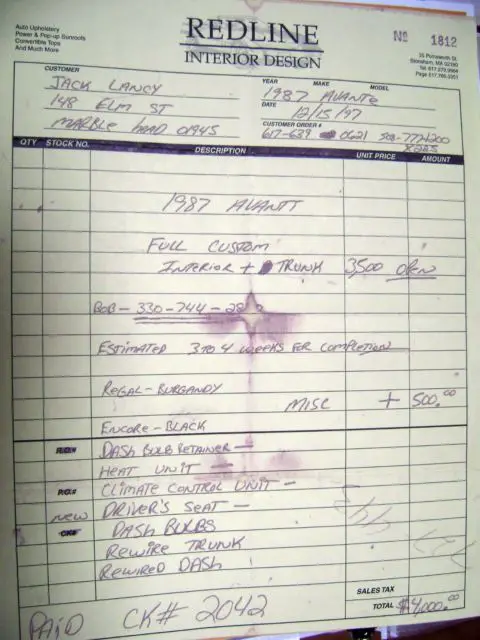 Auto Upholstery
Power & Pop-up Sunroofs
Convertible Tops
And Much More
REDLINE
INTERIOR DESIGN
No 1812
Stoneham, MA 02180
Tel 617.279.9964
CUSTOMER
JACK LANCY
148 ELM ST
MARBLE head 01945
YEAR MAKE MODEL
1987 AVANTE
DATE
12/15/97
CUSTOMER ORDER #
617-639 0621 508-777-1200
X285
QTY STOCK NO. DESCRIPTION UNIT PRICE AMOUNT
1987 AVANTI
FULL CUSTOM
INTERIOR + TRUNK 3,500 OPEN
BOB - 330-744-28
ESTIMATED 3 TO 4 WEEKS FOR COMPLETION
REGAL - BURGANDY
MISC + 500.00
ENCORE - BLACK
DASH BULB RETAINER —
HEAT UNIT —
P.O.# CLIMATE CONTROL UNIT —
NEW DRIVER'S SEAT —
CK# DASH BULBS
REWIRE TRUNK
REWIRED DASH
SALES TAX
TOTAL $4,000.00
PAID CK# 2042